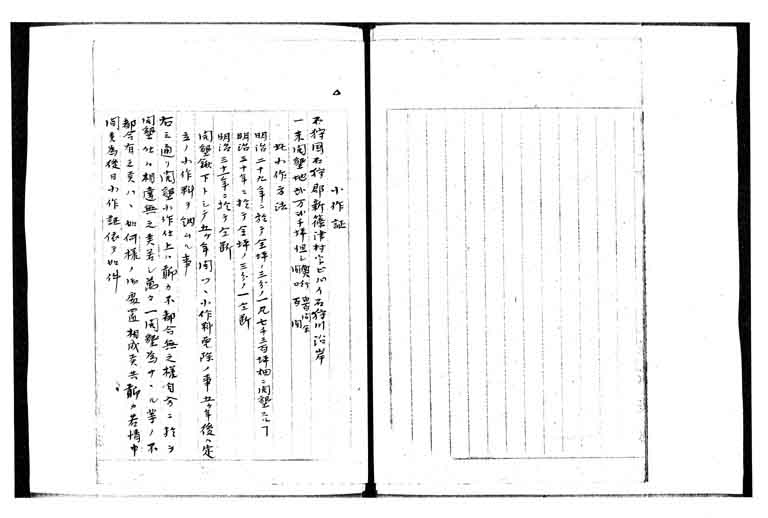 小作証
石狩国石狩郡新篠津村字ビバイ石狩川沿岸
一未開墾地 万 千坪 但シ 間
此小作方法
明治二十九年ニ於テ全坪ノ三分ノ一 七千三百坪 ニ開墾スル
明治三十年ニ於テ全坪ノ三分ノ一 全断
明治三十一年ニ於テ全断
開墾鍬下トシテ五ヶ年間 小作料免除ノ事五ヶ年後ハ定
立ノ小作料ヲ納ムル事
右之通リ開墾小作仕上ハ聊カ不都合無之様自分ニ於テ
開墾仕ハ相違無之 若シ萬々一開墾為サヾル等ノ不
都合有之 ハ如何様ノ御処置相成 共聊カ苦情申
間 為後日小作証依テ如件